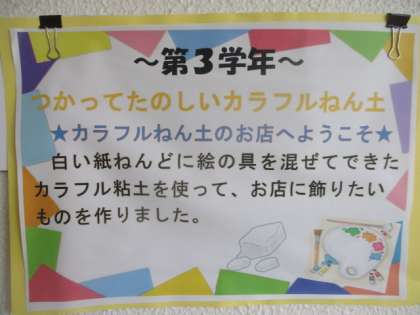 ～第3学年～
つかってたのしいカラフルねん土
★カラフルねん土のお店へようこそ★
白い紙ねんどに絵の具を混ぜてできた
カラフル粘土を使って、お店に飾りたい
ものを作りました。